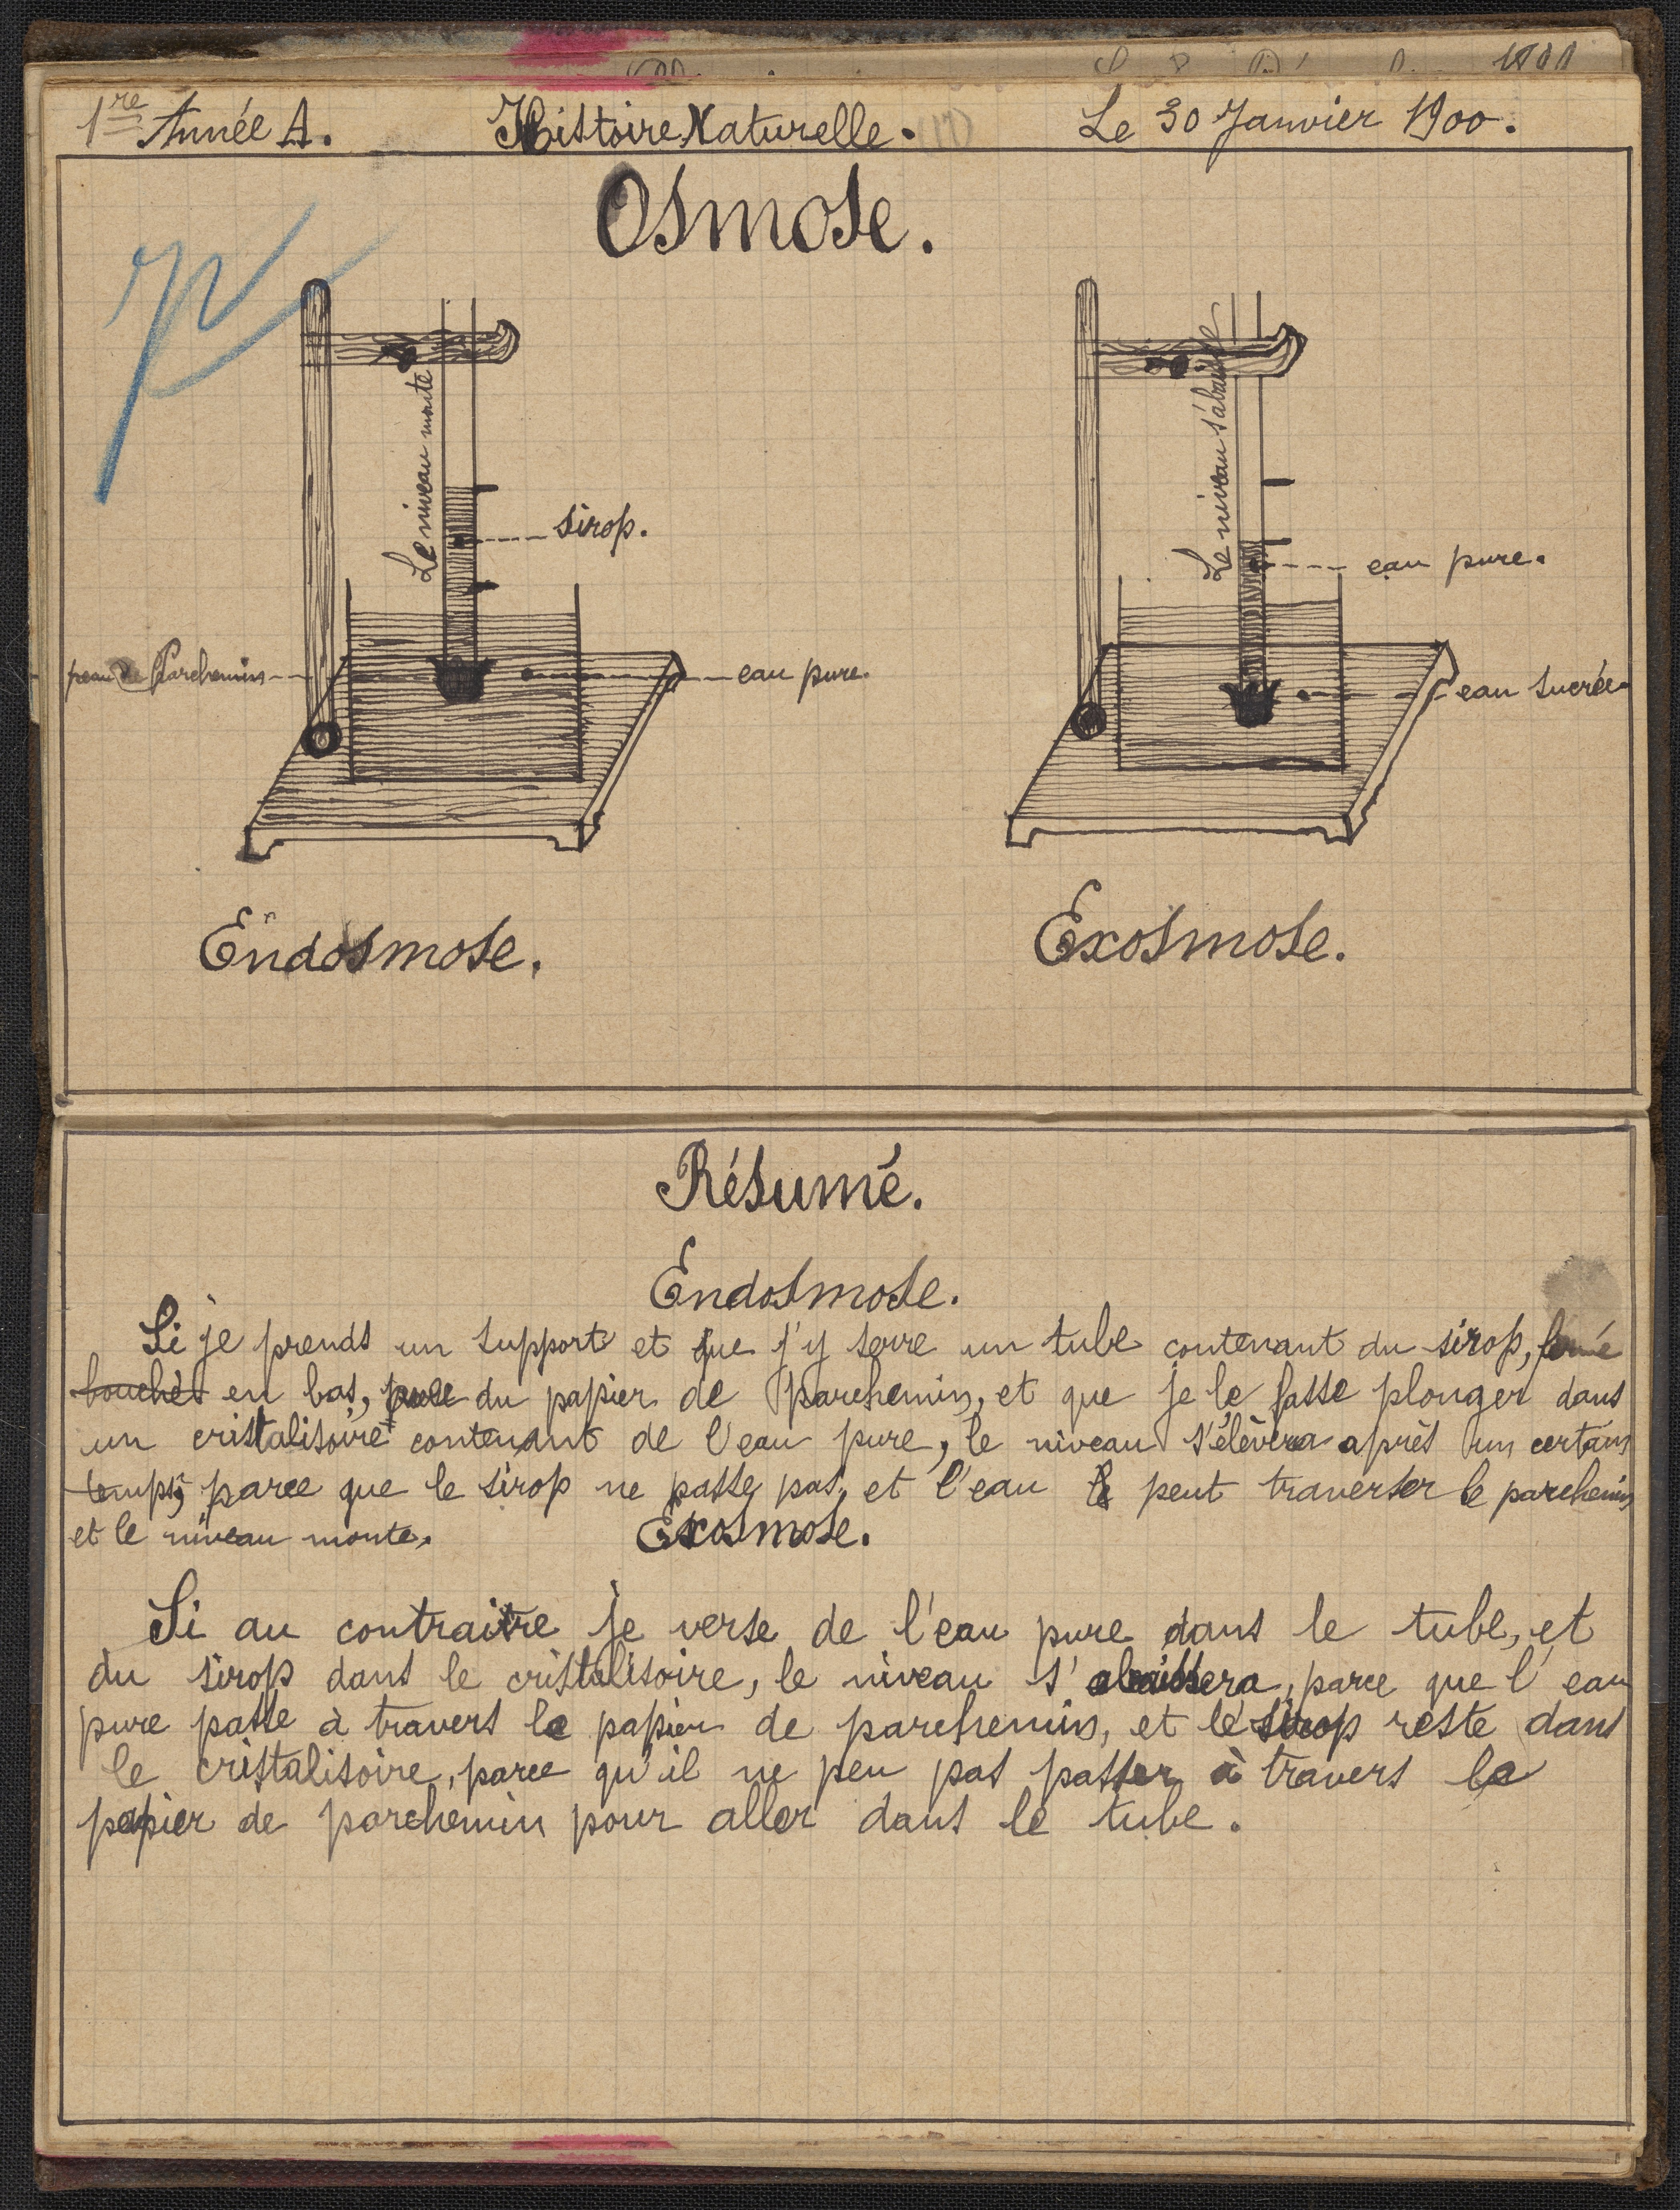 1re Année A. Histoire Naturelle. Le 30 Janvier 1900.
Osmose.
Le niveau monte
sirop.
peau de Parchemin
eau pure.
Le niveau s'abaisse
eau pure.
eau sucrée.
Endosmose.
Exosmose.
Résumé.
Endosmose.
Si je prends un support et que j'y serre un tube contenant du sirop, fermé
bouchés en bas, du papier de parchemin, et que je le fasse plonger dans
un cristalisoire contenant de l'eau pure, le niveau s'élèvera après un certain
temps, parce que le sirop ne passe pas, et l'eau peut traverser le parchemin
et le niveau monte.
Exosmose.
Si au contraire je verse de l'eau pure dans le tube, et
du sirop dans le cristalisoire, le niveau s'abaissera, parce que l'eau
pure passe à travers le papier de parchemin, et le sirop reste dans
le cristalisoire, parce qu'il ne peu pas passer à travers le
papier de parchemin pour aller dans le tube.